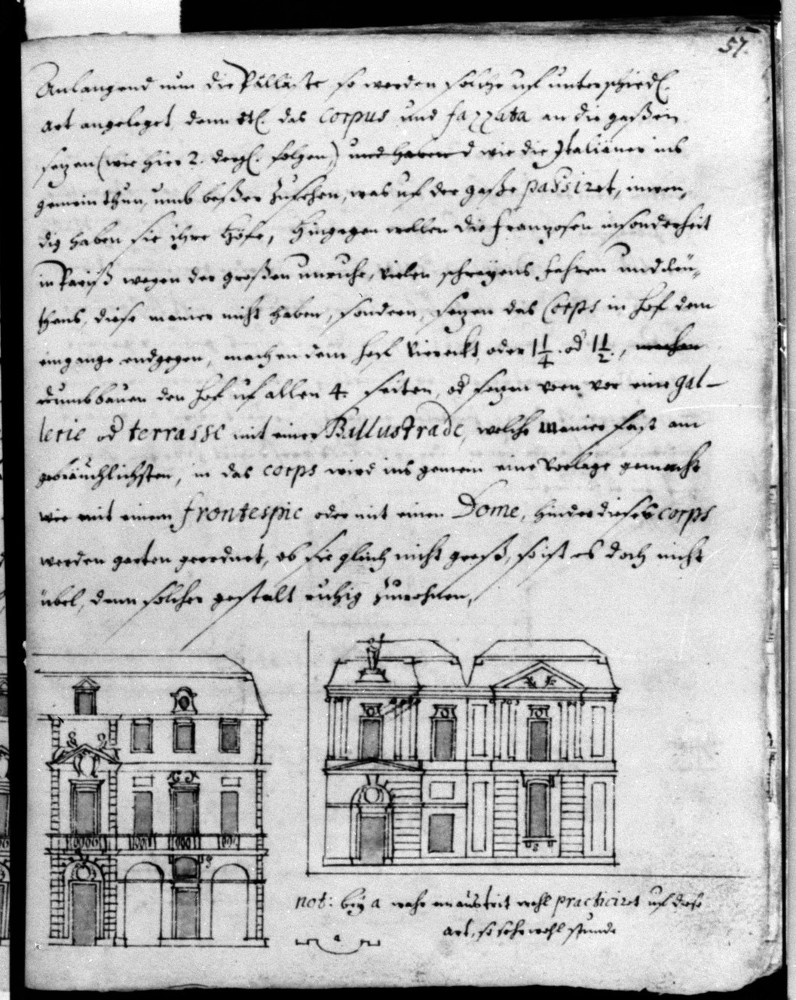 57.
Anlangend nun die Palläste so werden solche uf unterschiedl.
art angeleget, denn etl. das Corpus und fazzata an die gaßen
sezen (wie hier 2. dergl. folgen,) und haben wie die Italiäner ins
gemein thun, umb beßer zusehen, was uf der gaße passiret, inwen,
dig haben sie ihre Höfe, Hingegen wollen die Franzosen insonderheit
in Pariß wegen der großen unruhe, vielen schreyens fahren und
diese manier nicht haben, sondern, sezen das Corps in hof dem
eingange endgegen, machen den hof viereckt, oder 1 1/4 od 1 1/2,
umbbauen den hof uf allen 4. seiten, od sezen vorn vor eine gal-
lerie od terrasse mit einer Ballustrade, welche manier fast am
gebräuchlichsten, in das corps wird ins gemein eine Vorlage gemacht
wie mit einem frontespic oder mit einen Dome, hinder dieses corps
werden garten geordnet, ob sie gleich nicht groß, so ist es doch nicht
übel, denn solcher gestalt ruhig zuwohnen,
not: bey a wahr ein austrit wohl practiciret uf diese
art, so sehr wohl stunde
a